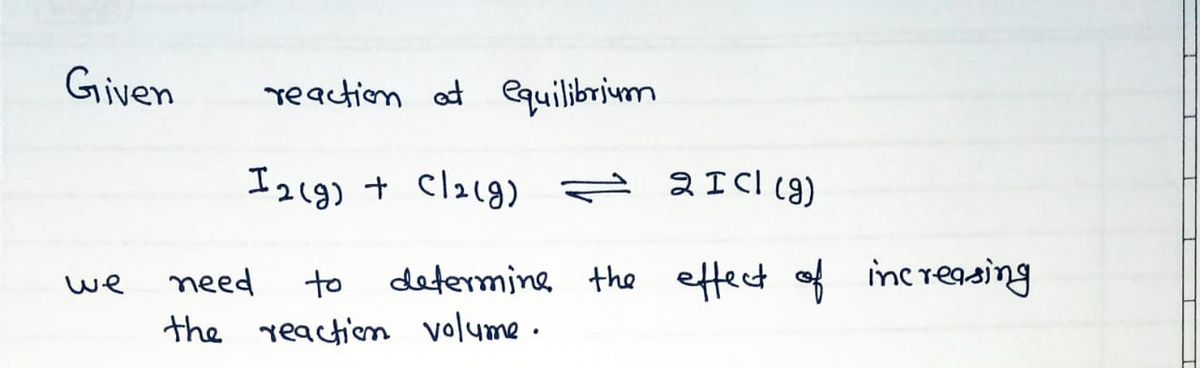 Given reaction at equilibrium
I2(g) + Cl2(g) ⇌ 2 I Cl (g)
we need to determine the effect of increasing
the reaction volume.